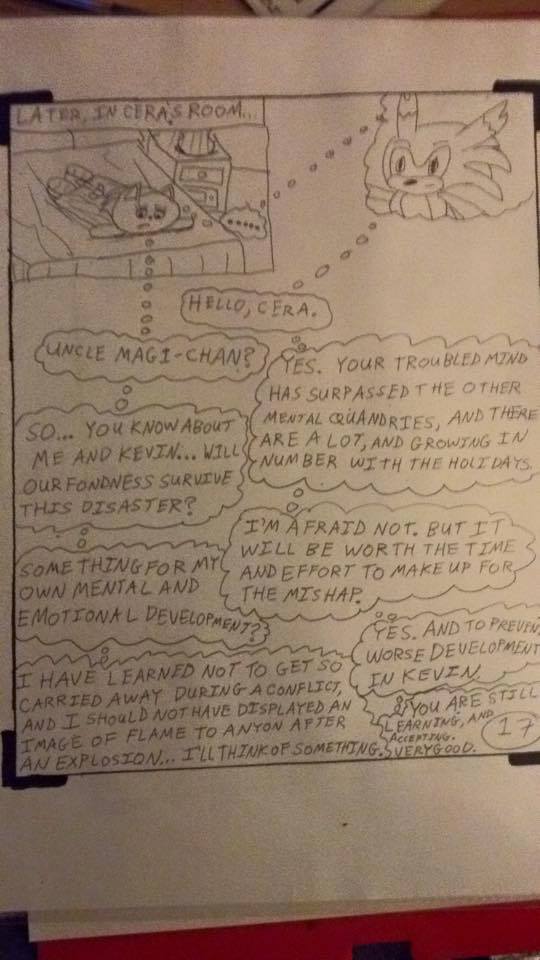 LATER, IN CERA'S ROOM...
.....
HELLO, CERA.
UNCLE MAGI-CHAN?
YES. YOUR TROUBLED MIND
HAS SURPASSED THE OTHER
MENTAL QUANDRIES, AND THERE
ARE A LOT, AND GROWING IN
NUMBER WITH THE HOLIDAYS.
SO... YOU KNOW ABOUT
ME AND KEVIN... WILL
OUR FONDNESS SURVIVE
THIS DISASTER?
I'M AFRAID NOT. BUT IT
WILL BE WORTH THE TIME
AND EFFORT TO MAKE UP FOR
THE MISHAP.
SOMETHING FOR MY
OWN MENTAL AND
EMOTIONAL DEVELOPMENT?
YES. AND TO PREVENT
WORSE DEVELOPMENT
IN KEVIN.
I HAVE LEARNED NOT TO GET SO
CARRIED AWAY DURING A CONFLICT,
AND I SHOULD NOT HAVE DISPLAYED AN
IMAGE OF FLAME TO ANYON AFTER
AN EXPLOSION... I'LL THINK OF SOMETHING.
YOU ARE STILL
LEARNING, AND
ACCEPTING.
VERY GOOD.
17